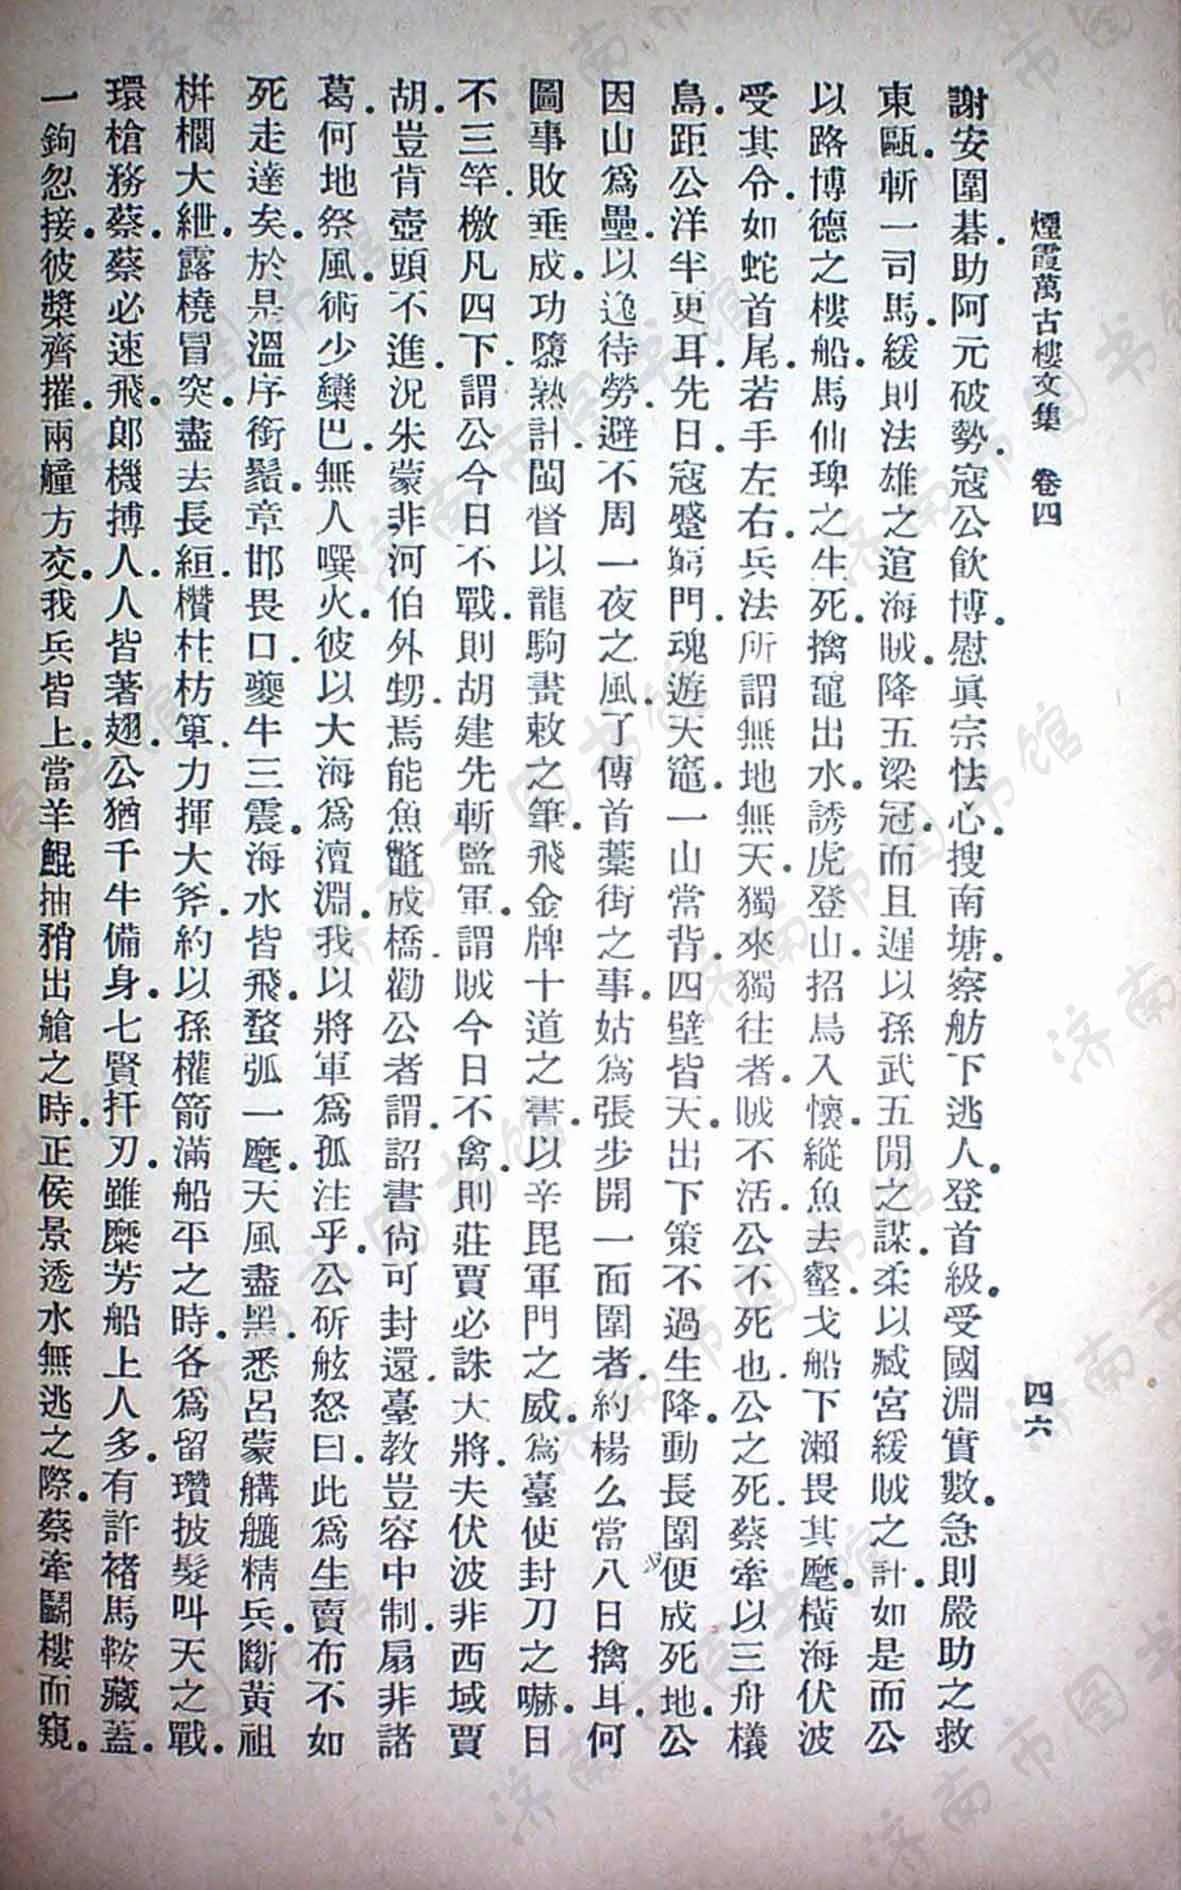 煙霞萬古樓文集 卷四 四六
謝安圍碁.助阿元破勢.寇公飲博.慰眞宗怯心.搜南塘.察舫下逃人.登首級.受國淵實數.急則嚴助之救
東甌.斬一司馬.緩則法雄之逭海賊.降五梁冠.而且遲以孫武五閒之謀.柔以臧宮緩賊之計.如是而公
以路博德之樓船.馬仙琕之生死.擒黿出水.誘虎登山.招鳥入懷.縱魚去壑.戈船下瀨畏其麾.橫海伏波
受其令.如蛇首尾.若手左右.兵法所謂無地無天.獨來獨往者.賊不活.公不死也.公之死.蔡牽以三舟檥
鳥.距公洋半更耳.先日.寇蹙窮門.魂遊天竈.一山當背.四壁皆天.出下策不過生降.動長圍便成死地.公
因山爲壘.以逸待勞.避不周一夜之風.了傳首藁街之事.姑爲張步開一面圍者.約楊么當八日擒耳.何
圖事敗垂成.功隳熟計.閩督以龍駒畫敕之筆.飛金牌十道之書.以辛毘軍門之威.爲臺使封刀之嚇.日
不三竿.檄凡四下.謂公今日不戰.則胡建先斬監軍.謂賊今日不禽.則莊賈必誅大將.夫伏波非西域賈
胡.豈肯壺頭不進.況朱蒙非河伯外甥.焉能魚鼈成橋.勸公者謂.詔書尙可封還.臺教豈容中制.扇非諸
葛.何地祭風.術少欒巴.無人噀火.彼以大海爲澶淵.我以將軍爲孤注乎.公斫舷怒曰.此爲生賣布不如
死走達矣.於是溫序銜鬚.章邯畏口.夔牛三震.海水皆飛.蝥弧一麾.天風盡黑.悉呂蒙䑦𦪇精兵.斷黃祖
栟櫚大紲.露橈冒突.盡去長絙.欑柱枋箄.力揮大斧.約以孫權箭滿船平之時.各爲留瓚披髮叫天之戰.
環槍務蔡.蔡必速飛.郎機搏人.人皆著翅.公猶千牛備身.七賢扞刃.雖糜芳船上人多.有許褚馬鞍藏蓋.
一鉤忽接.彼槳齊摧.兩艟方交.我兵皆上.當羊鯤抽矟出艙之時.正侯景透水無逃之際.蔡牽鬭樓而窺.